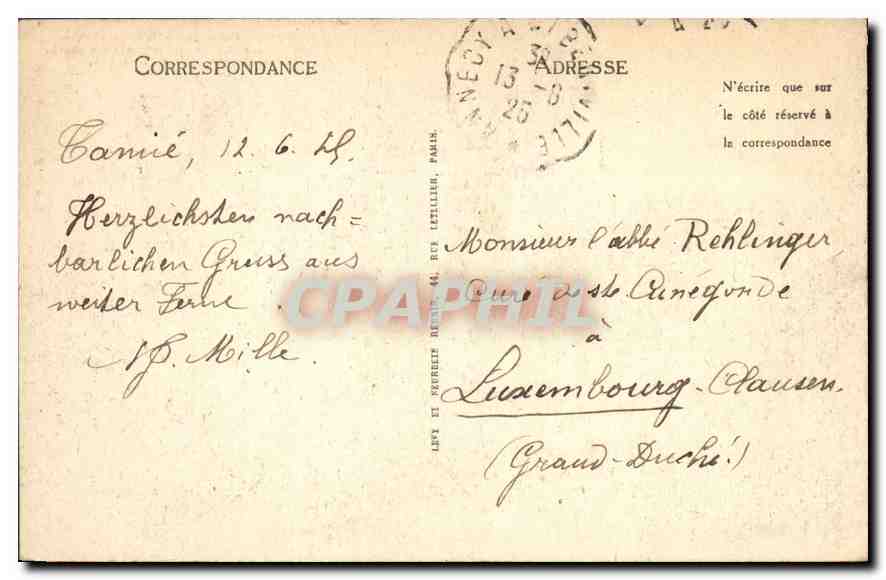 CORRESPONDANCE
ADRESSE
N'écrire que sur
le côté réservé à
la correspondance
ANNECY A ALBERTVILLE
13 - 6
25
Tamié, 12. 6. 25.
Herzlichsten nach=
barlichen Gruss aus
weiter Ferne
Mille.
LEVY ET NEURDEIN RÉUNIS, 44, RUE LETELLIER, PARIS.
Monsieur l'abbé Rehlinger
Curé de Ste Cunégonde
à
Luxembourg-Clausen.
(Grand-Duché!)
CPAPHIL